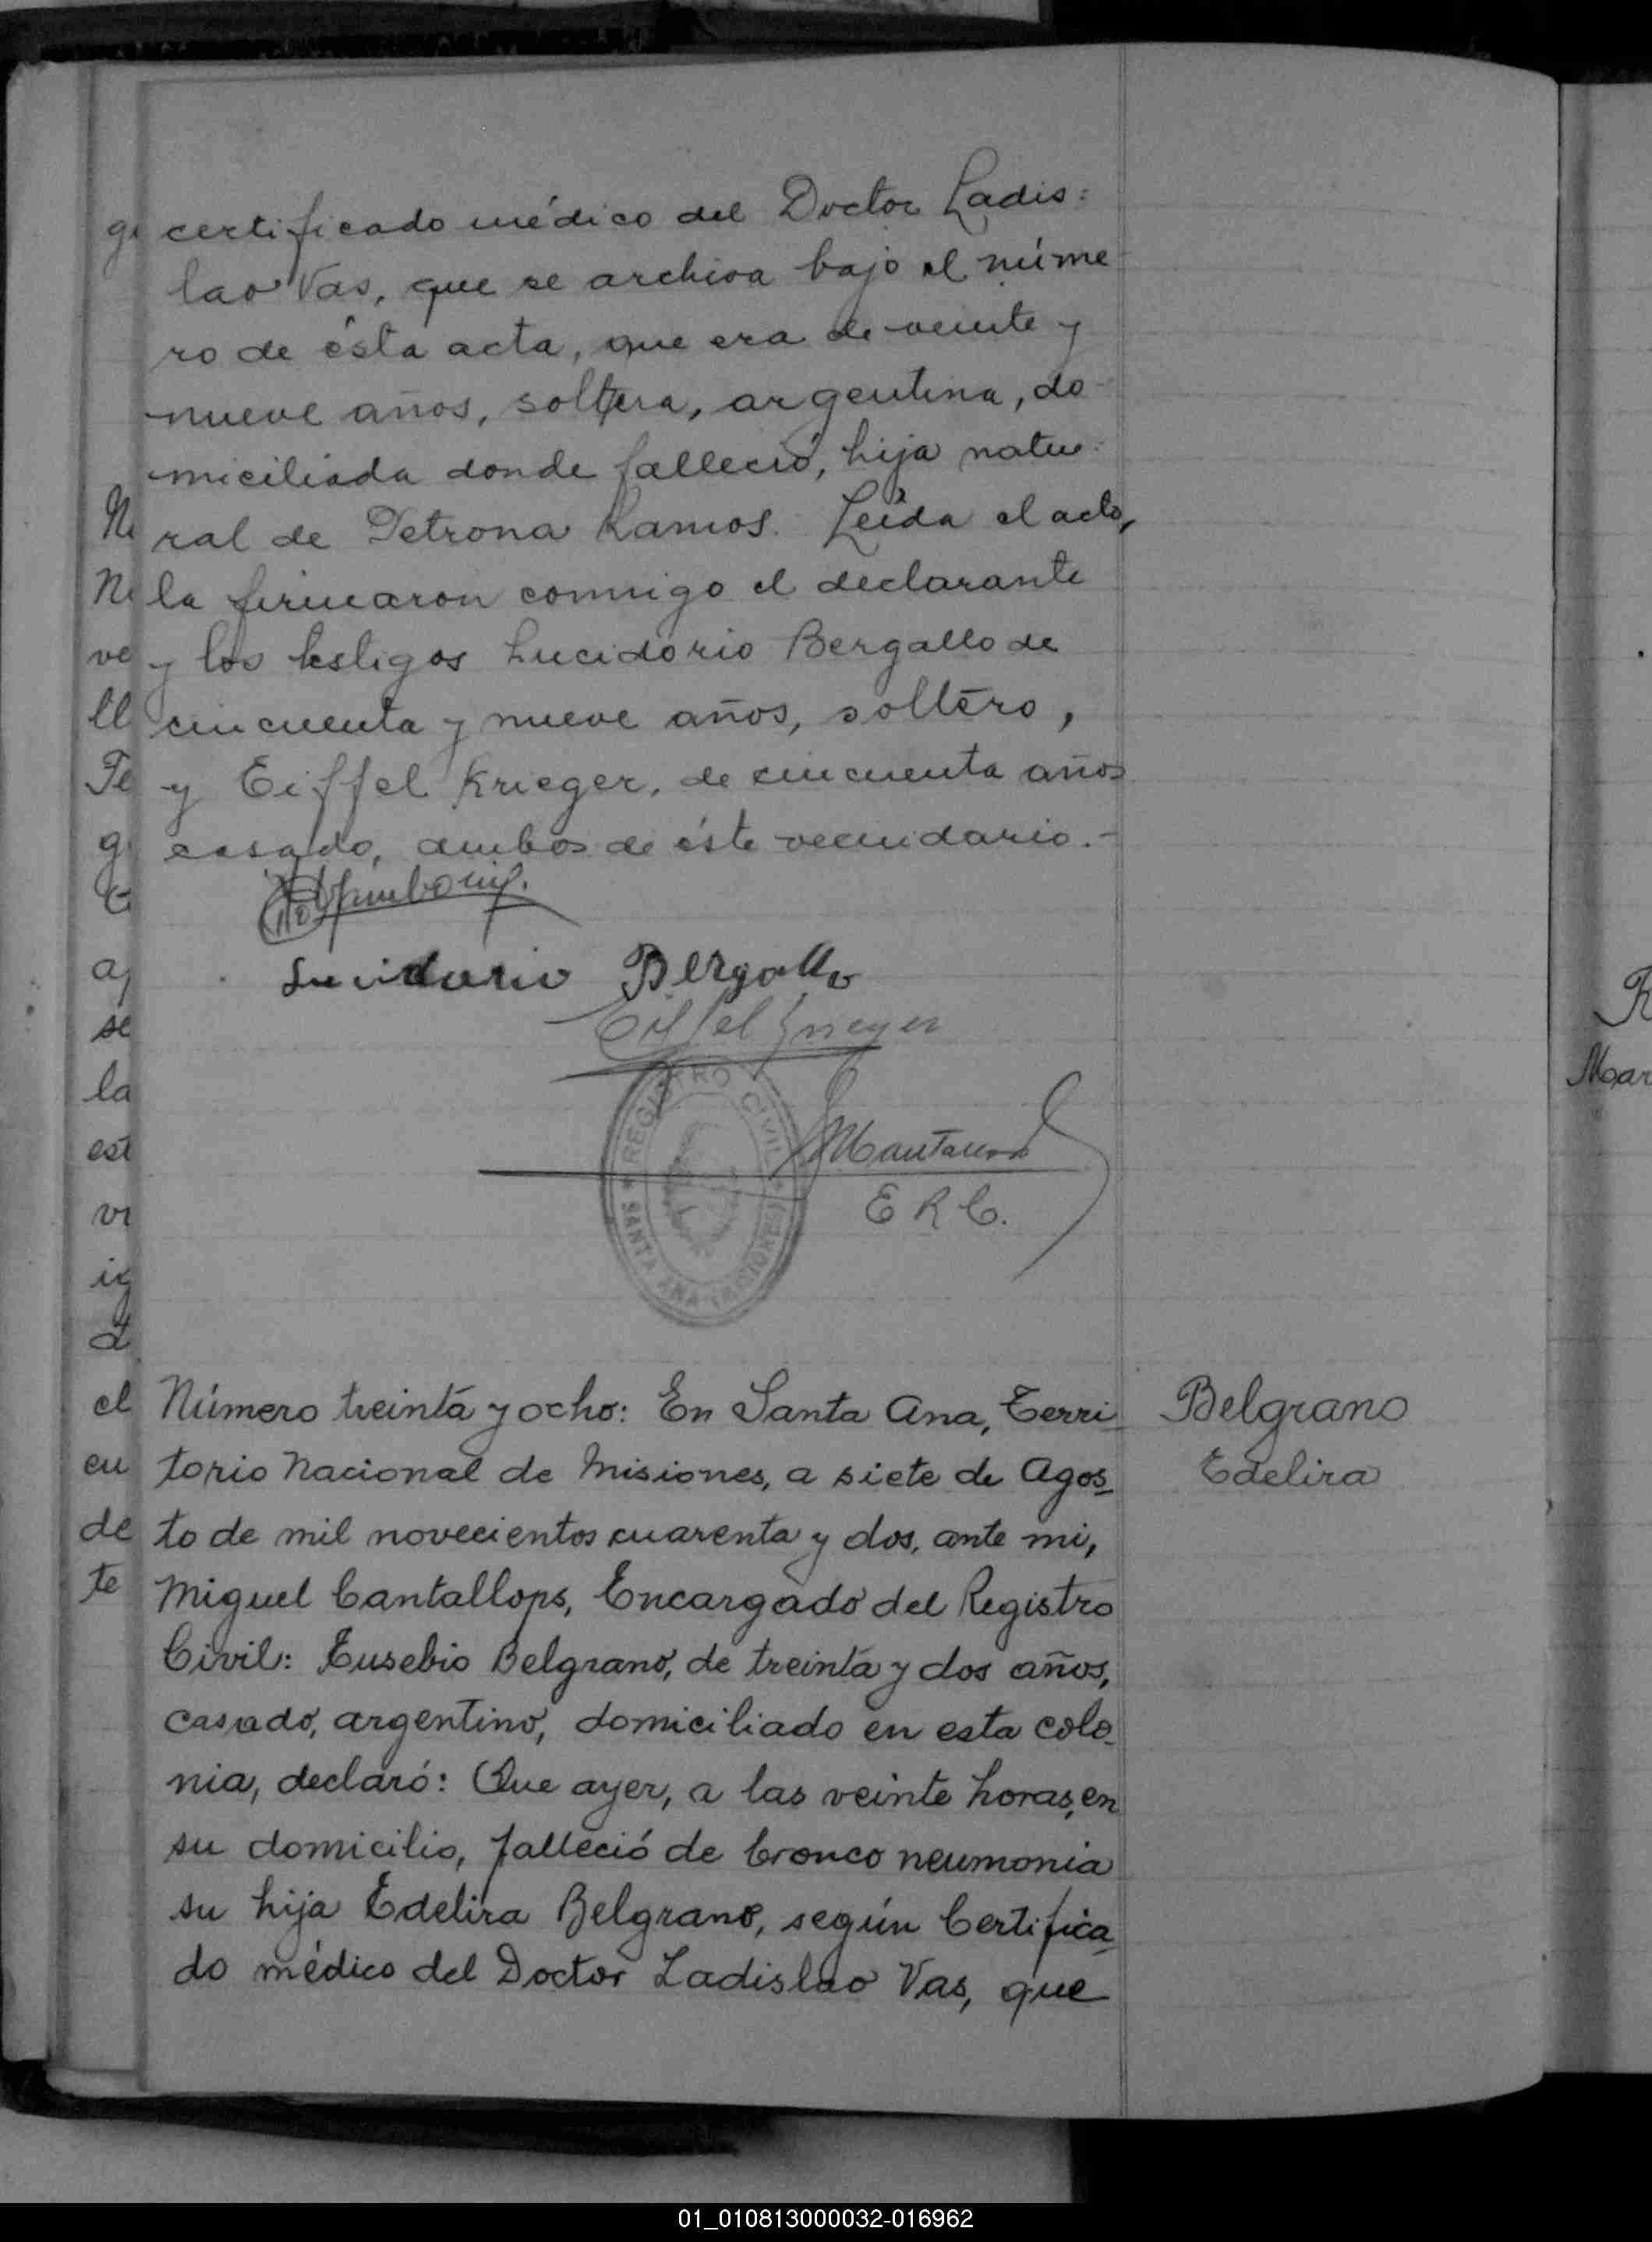 certificado médico del Doctor Ladis:
lao Vas, que se archiva bajo el núme
ro de ésta acta, que era de veinte y
nueve años, soltera, argentina, do-
miciliada donde falleció, hija natu:
ral de Petrona Ramos. Leída el acta,
la firmaron conmigo el declarante
y los testigos Lucidorio Bergallo de
cincuenta y nueve años, soltero,
y Eiffel Krieger, de cincuenta años
casado, ambos de éste vecindario.-
Lucidorio Bergallo
Eiffel Krieger
REGISTRO CIVIL
SANTA ANA (MISIONES)
E R C.
Número treinta y ocho: En Santa Ana, Terri
torio Nacional de Misiones, a siete de Agos
to de mil novecientos cuarenta y dos, ante mi,
Miguel Cantallops, Encargado del Registro
Civil: Eusebio Belgrano, de treinta y dos años,
casado, argentino, domiciliado en esta colo
nia, declaró: Que ayer, a las veinte horas, en
su domicilio, falleció de bronco neumonia
su hija Edelira Belgrano, según Certifica
do médico del Doctor Ladislao Vas, que
Belgrano
Edelira
ve
ll
Te
se
la
est
vi
ig
el
en
de
te
Mar
01_010813000032-016962